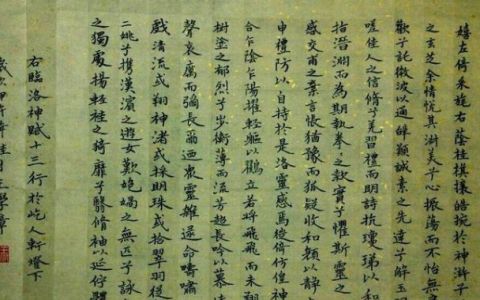 嬉左倚采旄右蔭桂旗攘皓捥於神滸兮
之玄芝余情悅其淑美兮心振蕩而不怡無
歡兮託微波以通辭願誠素之先達兮解玉
嗟佳人之信脩兮羌習禮而明詩抗瓊珶以和
指潛淵而為期執拳之款實兮懼斯靈之
感交甫之棄言悵猶豫而狐疑收和顏以靜
申禮防以自持於是洛靈感焉徙倚仿偟神
合乍陰乍陽擢輕軀以鶴立若將飛而未翔
塗之郁烈兮步衡薄而流芳超長吟以慕
聲哀厲而彌長爾迺衆靈雜遝命疇嘯
戲清流或翔神渚或採明珠或拾翠羽從
二姚兮攜漢濱之遊女歎媧之無匹兮詠
之獨處揚輕袿之猗靡兮翳脩袖以延佇
右臨洛神賦十三行於人軒燈下